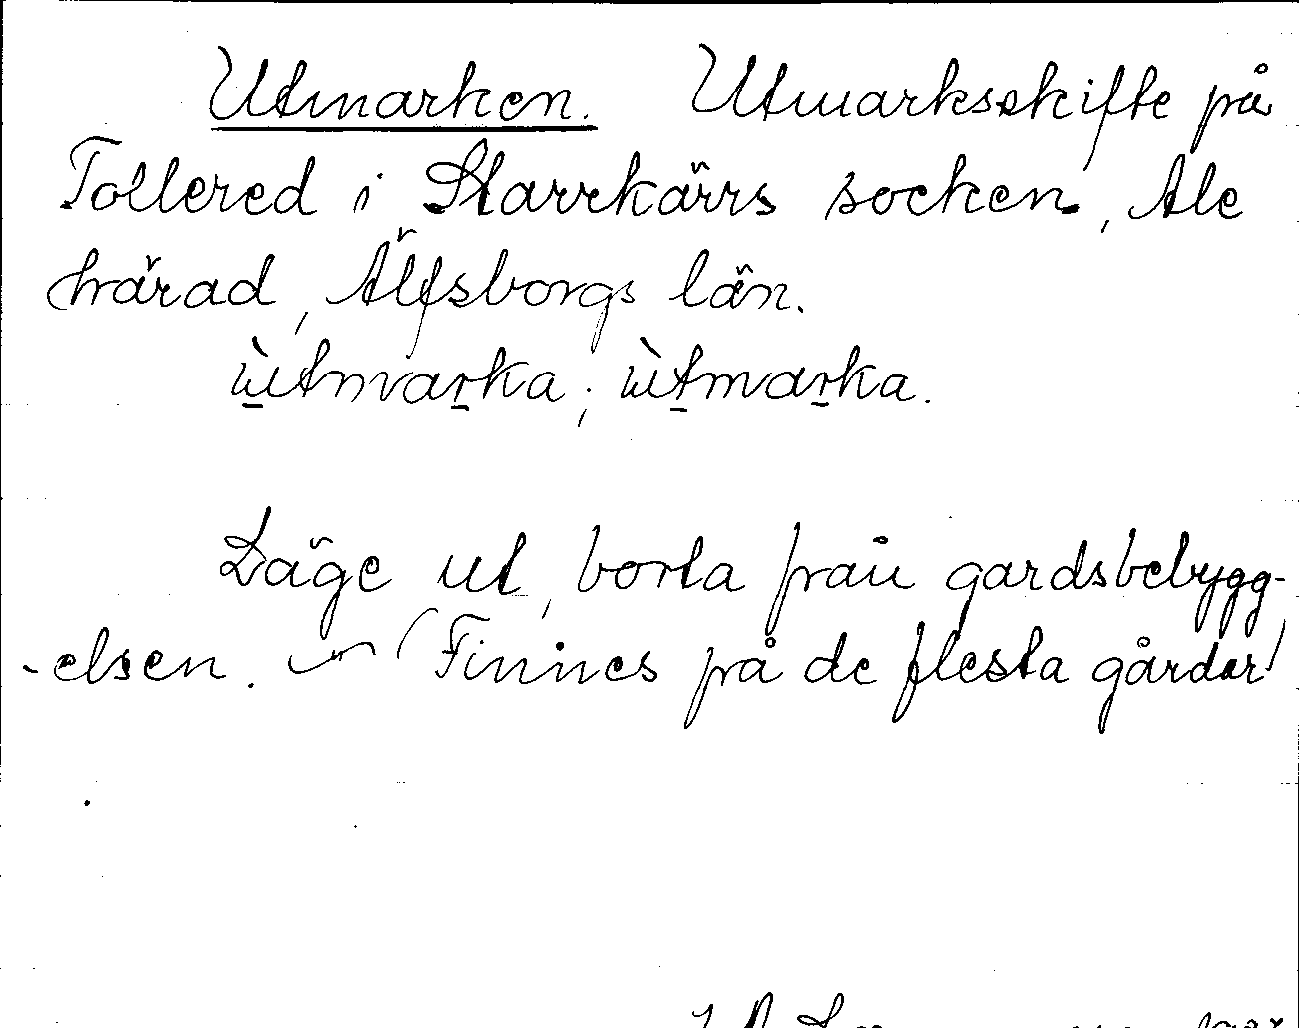 Utmarken. Utmarksskifte på
Tollered i Starrkärrs socken, Ale
härad, Älfsborgs län.
ùtmarka; ùtmarka.
Läge ut, borta från gårdsbebygg-
-elsen. (Finnes på de flesta gårdar)